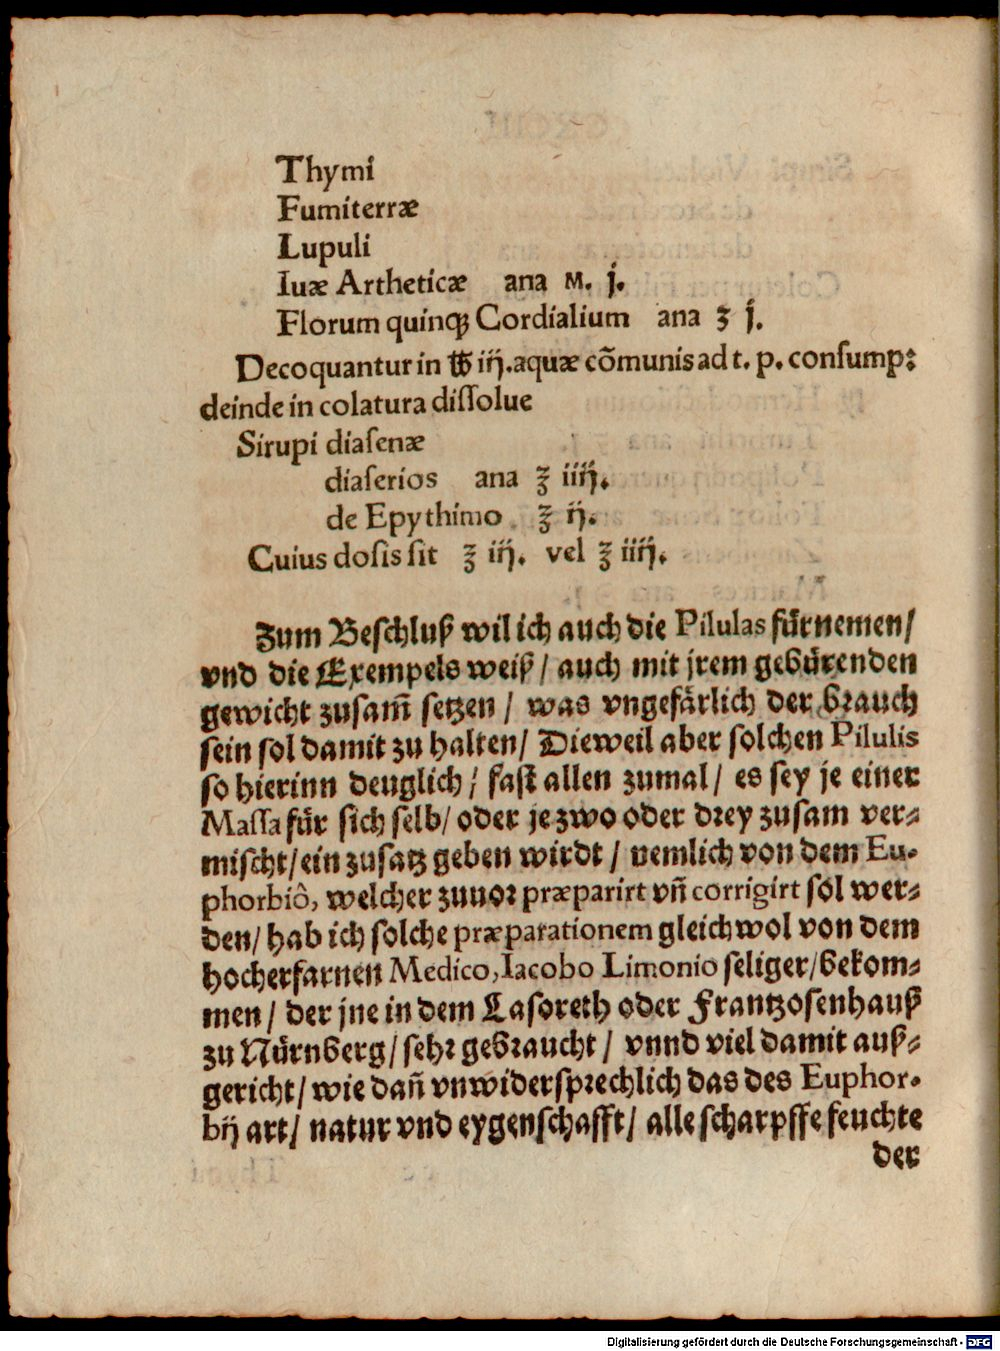 Thymi
Fumiterræ
Lupuli
Iuæ Artheticæ ana M. j.
Florum quinqꝫ Cordialium ana ʒ j.
Decoquantur in ℔ iij. aquæ cõmunis ad t. p. consump:
deinde in colatura dissolue
Sirupi diasenæ
diaserios ana ℥ iiij.
de Epythimo ℥ ij.
Cuius dosis sit ℥ iij. vel ℥ iiij.
Zum Beschluß wil ich auch die Pilulas fürnemen/
vnd die Exempels weiß/ auch mit jrem gebürenden
gewicht zusam̃ setzen/ was vngefärlich der brauch
sein sol damit zu halten/ Dieweil aber solchen Pilulis
so hierinn deuglich/ fast allen zumal/ es sey je einer
Massa für sich selb/ oder je zwo oder drey zusam ver-
mischt/ ein zusatz geben wirdt/ nemlich von dem Eu-
phorbiô, welcher zuuor præparirt vñ corrigirt sol wer-
den/ hab ich solche præparationem gleichwol von dem
hocherfarnen Medico, Iacobo Limonio seliger/ bekom-
men/ der jne in dem Lasoreth oder Frantzosenhauß
zu Nürnberg/ sehr gebraucht/ vnnd viel damit auß-
gericht/ wie dañ vnwidersprechlich das des Euphor-
bij art/ natur vnd eygenschafft/ alle scharpffe feuchte
der
Digitalisierung gefördert durch die Deutsche Forschungsgemeinschaft - DFG